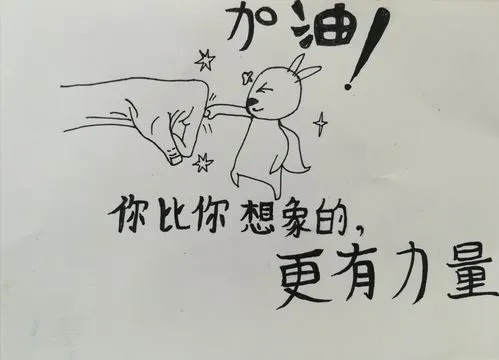 加油！
你比你想象的，
更有力量